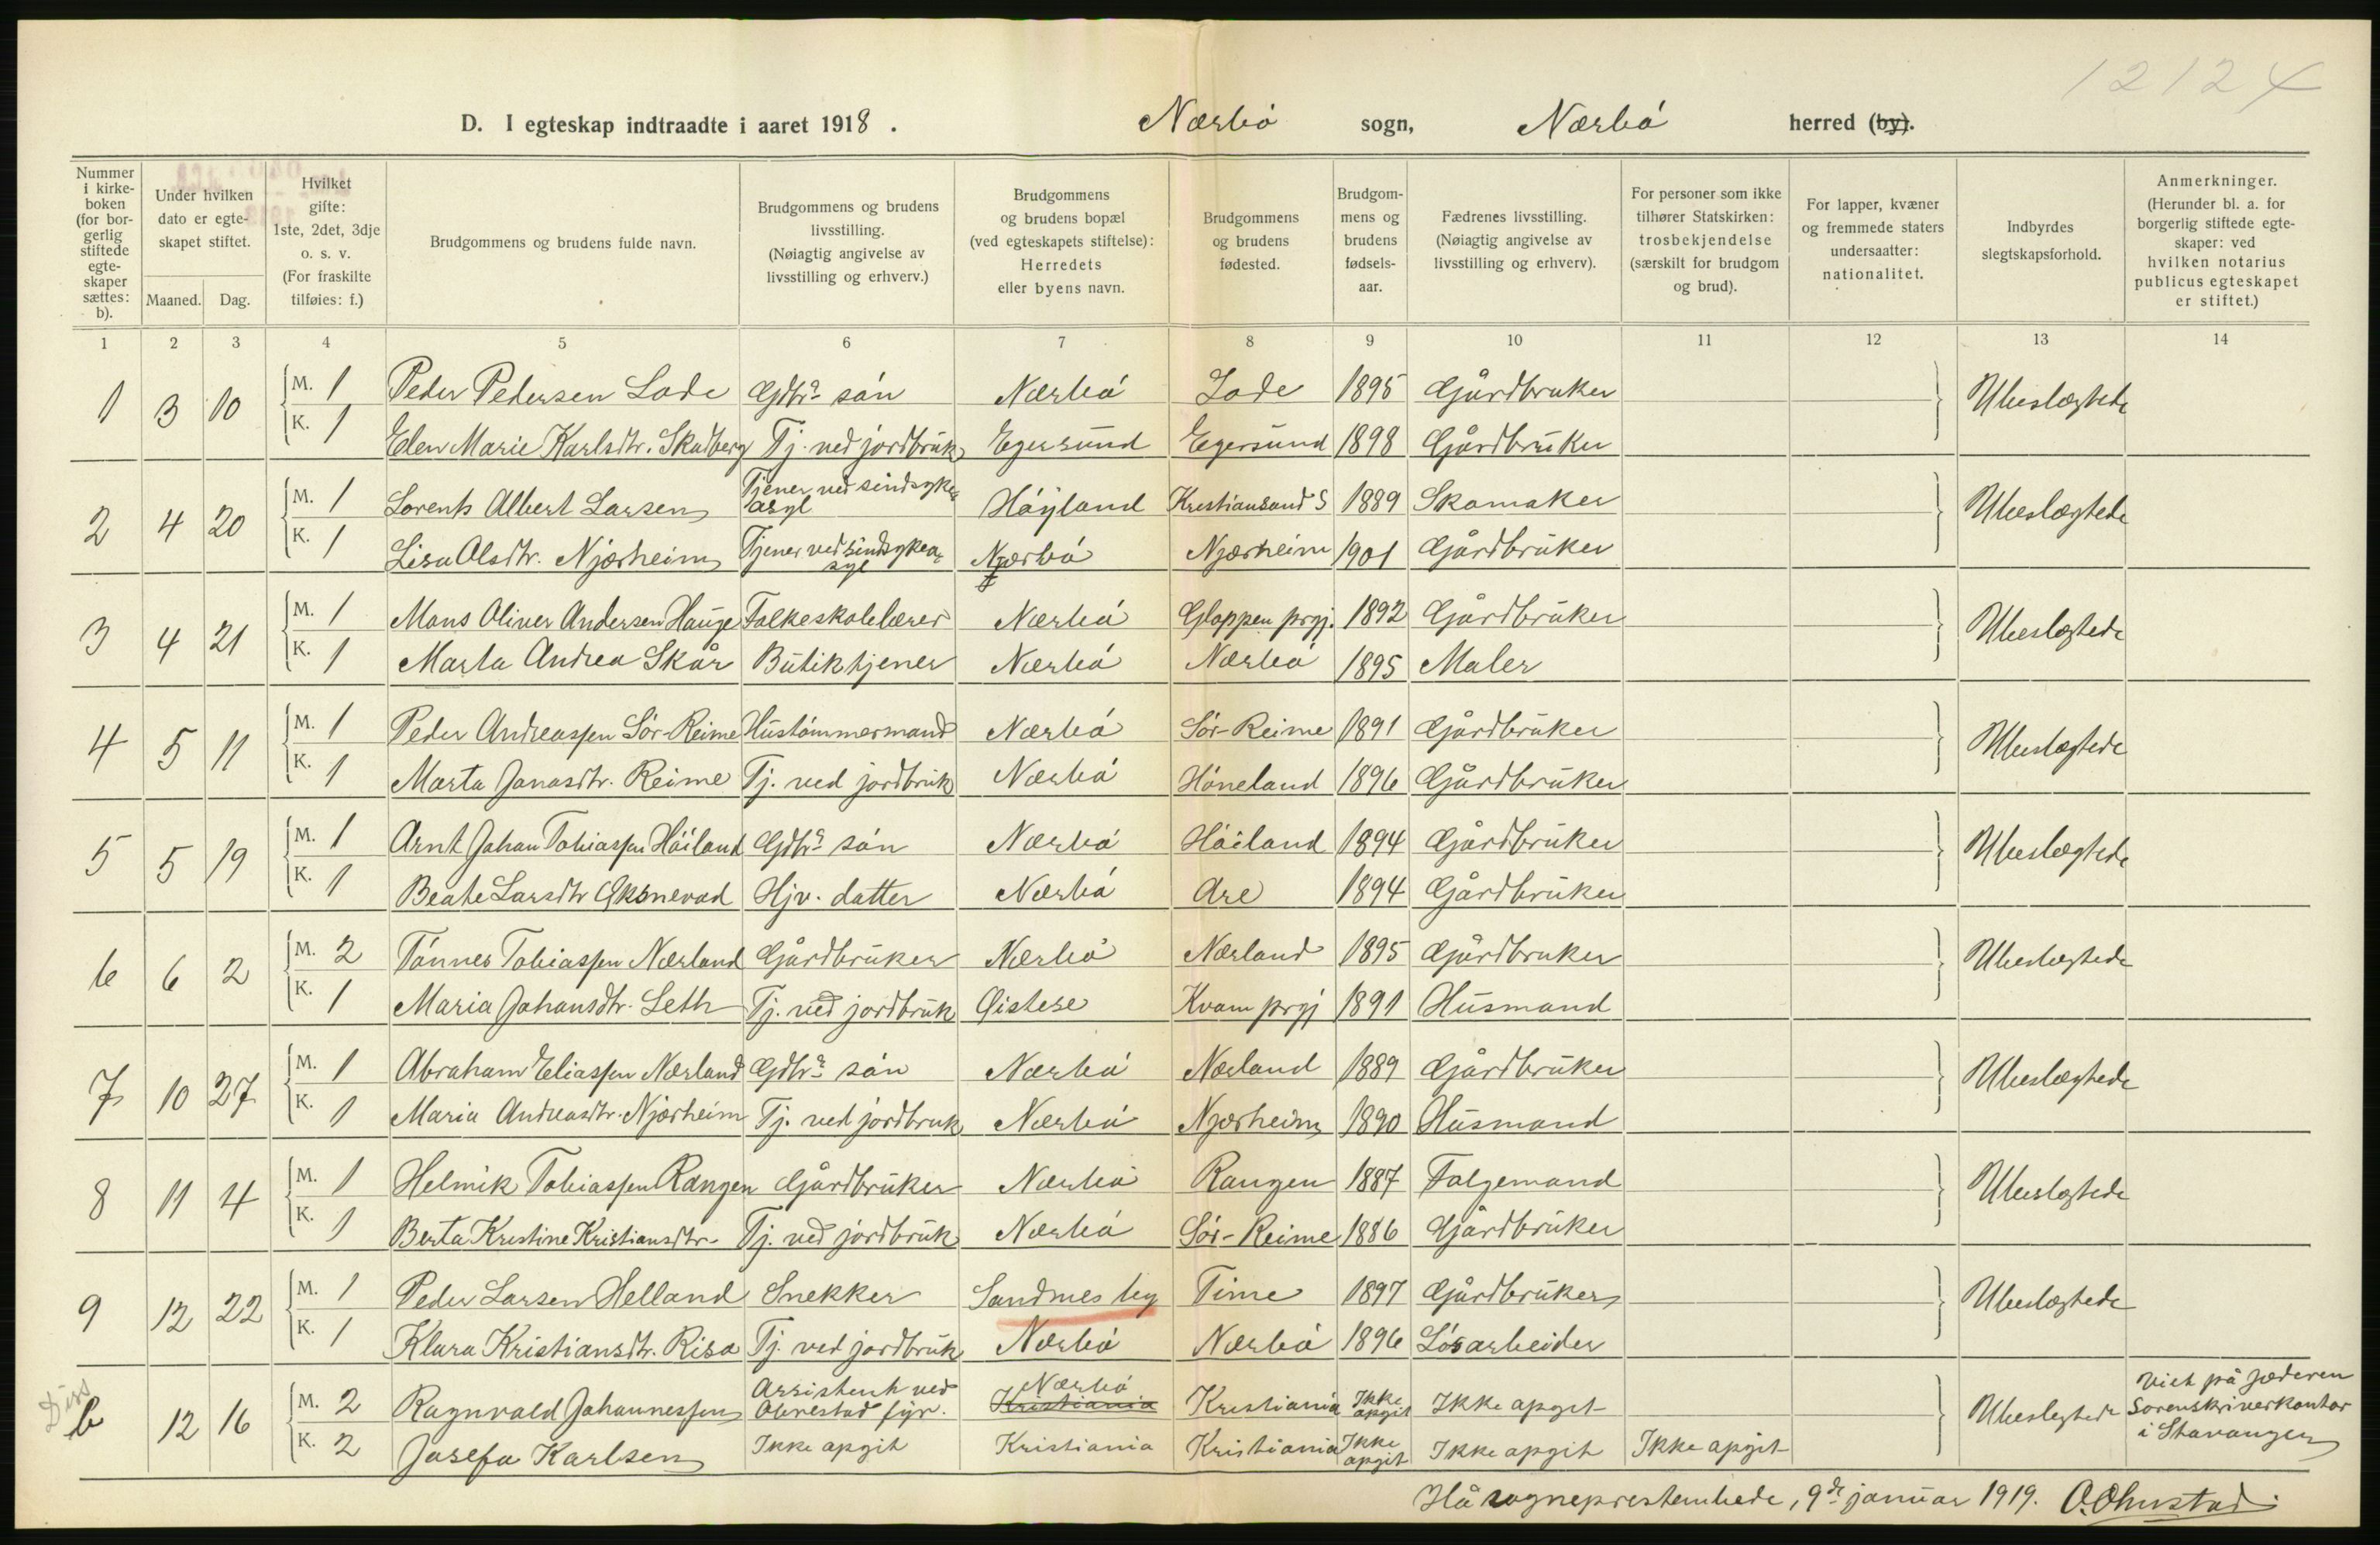 12124
D. I egteskap indtraadte i aaret 1918. Nærbó sogn, Nærbó herred (by).
Nummer i kirke-boken (for bor-gerlig stiftede egte-skaper sættes: b).
Under hvilken dato er egte-skapet stiftet.
Maaned. Dag.
Hvilket gifte: 1ste, 2det, 3dje o. s. v. (For fraskilte tilføies: f.)
Brudgommens og brudens fulde navn.
Brudgommens og brudens livsstilling. (Nøiagtig angivelse av livsstilling og erhverv.)
Brudgommens og brudens bopæl (ved egteskapets stiftelse): Herredets eller byens navn.
Brudgommens og brudens fødested.
Brudgom-mens og brudens fødsels-aar.
Fædrenes livsstilling. (Nøiagtig angivelse av livsstilling og erhverv).
For personer som ikke tilhører Statskirken: trosbekjendelse (særskilt for brudgom og brud).
For lapper, kvæner og fremmede staters undersaatter: nationalitet.
Indbyrdes slegtskapsforhold.
Anmerkninger. (Herunder bl. a. for borgerlig stiftede egte-skaper: ved hvilken notarius publicus egteskapet er stiftet.)
1 2 3 4 5 6 7 8 9 10 11 12 13 14
1 3 10 M. 1 Peder Pedersen Lode Gdbr. són Nærbó Lode 1895 Gårdbruker Ubeslægtede
K. 1 Elen Marie Karlsdtr. Skadberg Tj. ved jordbruk Egersund Egersund 1898 Gårdbruker
2 4 20 M. 1 Lorents Albert Larsen Tjener ved sindsyke-asyl Hóyland Kristiansand S 1889 Skomaker Ubeslægtede
K. 1 Lisa Olsdtr. Njærheim Tjener ved sindsykea-syl Nærbó Njærheim 1901 Gårdbruker
3 4 21 M. 1 Mons Oliver Andersen Hauge Folkeskolelærer Nærbó Gloppen prgj. 1892 Gårdbruker Ubeslægtede
K. 1 Marta Andrea Skår Butiktjener Nærbó Nærbó 1895 Maler
4 5 11 M. 1 Peder Andreassen Sór-Reime Hustómmermand Nærbó Sór-Reime 1891 Gårdbruker Ubeslægtede
K. 1 Marta Jonasdtr. Reime Tj. ved jordbruk Nærbó Hóneland 1896 Gårdbruker
5 5 19 M. 1 Arnt Johan Tobiassen Hóiland Gdbr. són Nærbó Hóiland 1894 Gårdbruker Ubeslægtede
K. 1 Beate Larsdtr Eksnevad Hjv. datter Nærbó Are 1894 Gårdbruker
6 6 2 M. 2 Tónnes Tobiassen Nærland Gårdbruker Nærbó Nærland 1895 Gårdbruker Ubeslægtede
K. 1 Maria Johansdtr. Leth Tj. ved jordbruk Øistese Kvam prgj 1891 Husmand
7 10 27 M. 1 Abraham Eliassen Nærland Gdbr. són Nærbó Nærland 1889 Gårdbruker Ubeslægtede
K. 1 Maria Andreasdtr. Njærheim Tj. ved jordbruk Nærbó Njærheim 1890 Husmand
8 11 4 M. 1 Helmik Tobiassen Rangen Gårdbruker Nærbó Rangen 1887 Folgemand Ubeslægtede
K. 1 Berta Kristine Kristiansdtr. Tj. ved jordbruk Nærbó Sór-Reime 1886 Gårdbruker
9 12 22 M. 1 Peder Larsen Helland Snekker Sandnes by Time 1897 Gårdbruker Ubeslægtede
K. 1 Klara Kristiansdtr. Risa Tj. ved jordbruk Nærbó Nærbó 1896 Lósarbeider
Diss
b 12 16 M. 2 Ragnvald Johannessen Assistent ved Obrestad fyr. Nærbó Kristiania Kristiania Ikke opgit Ikke opgit Ubeslegtede Viet på Jæderen Sorenskriverkontor i Stavanger
K. 2 Josefa Karlsen Ikke opgit Kristiania Kristiania Ikke opgit Ikke opgit Ikke opgit
Hå sogneprestembede, 9de januar 1919. O. Olmstad